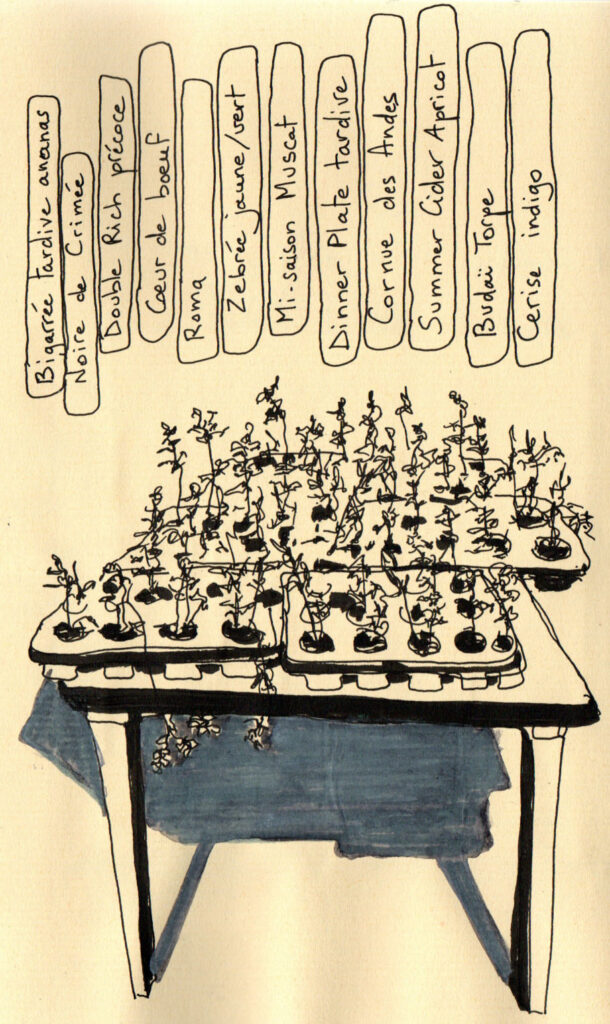 Bigarrée tardive ananas
Noire de Crimée
Double Rich précoce
Cœur de boeuf
Roma
Zebrée jaune/vert
Mi-saison Muscat
Dinner Plate tardive
Cornue des Andes
Summer Cider Apricot
Budaï Torpe
Cerise indigo